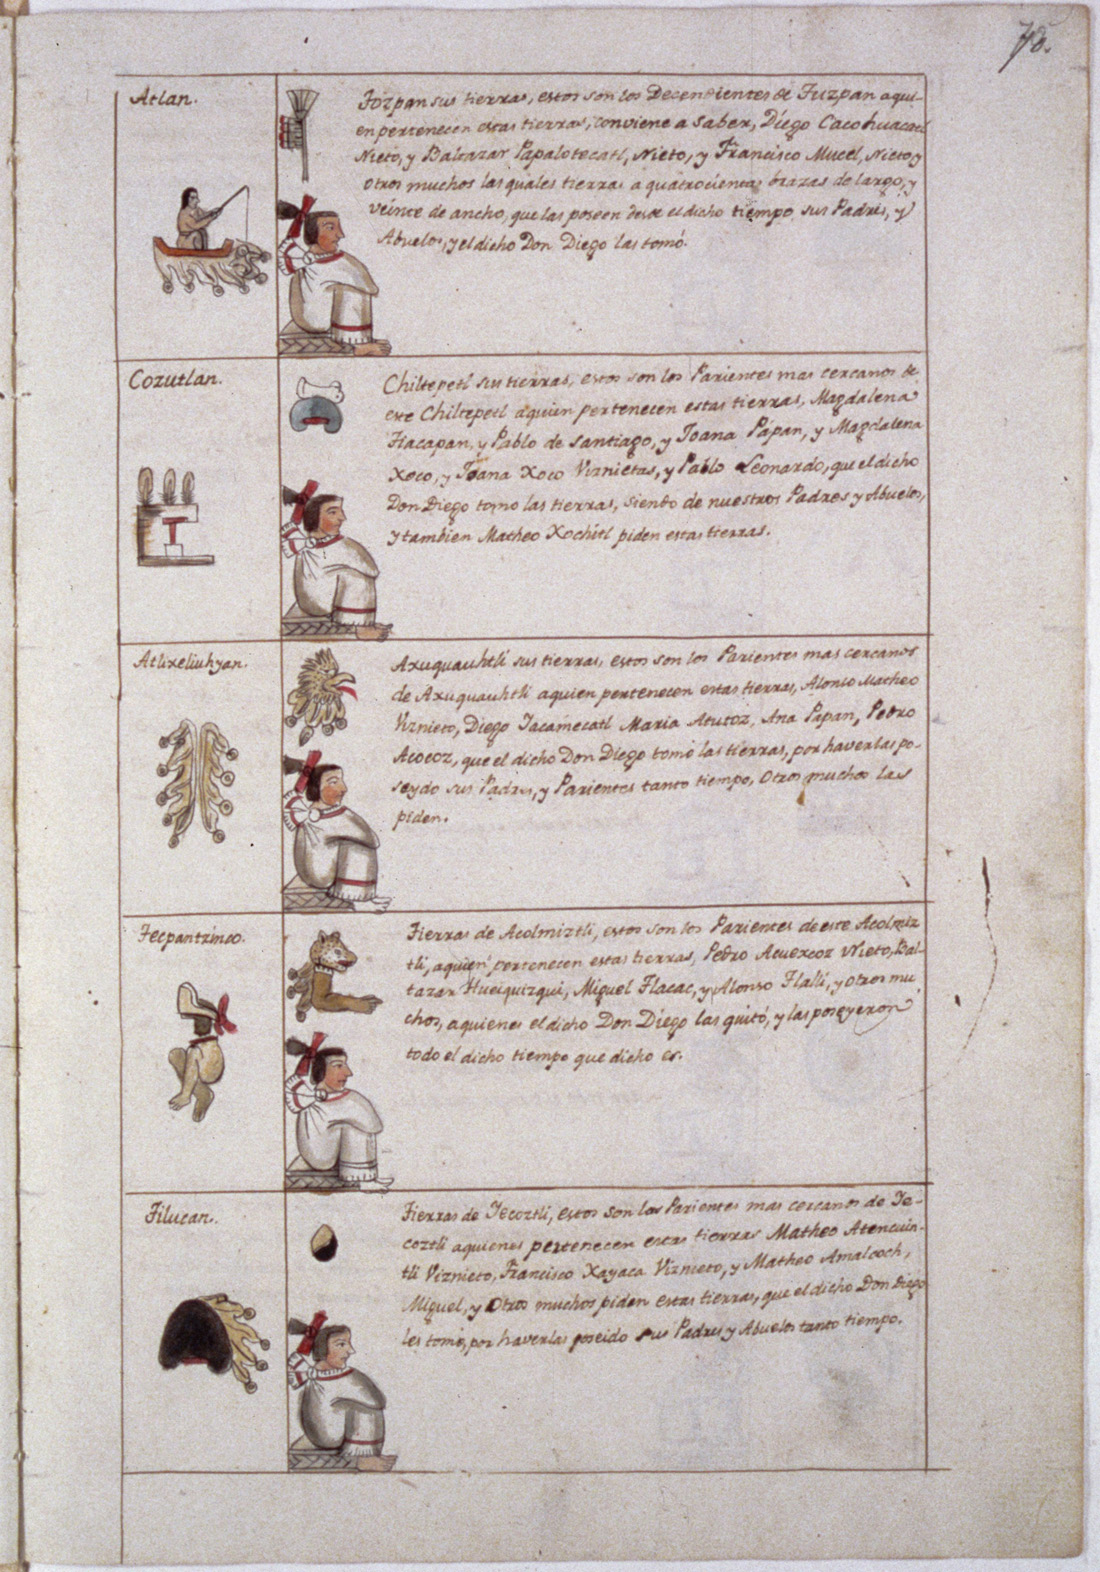 78.
Atlan.
Tozpan sus tierras, estos son los Decendientes de Tuzpan aqui-
en pertenecen estas tierras, conviene a saber, Diego Cacohuacatl
Nieto, y Baltazar Papalotecatl, Nieto, y Francisco Mucel, Nieto y
otros muchos las quales tierras a quatrocientas brazas de largo, y
veinte de ancho, que las poseen desde el dicho tiempo sus Padres, y
Abuelos, y el dicho Don Diego las tomó.
Cozutlan.
Chiltepetl sus tierras, estos son los Parientes mas cercanos de
este Chiltepetl aquien pertenecen estas tierras, Magdalena
Tiacapan, y Pablo de Santiago, y Joana Papan, y Magdalena
Xoco, y Joana Xoco Viznietas, y Pablo Leonardo, que el dicho
Don Diego tomo las tierras, siendo de nuestros Padres y Abuelos,
y tambien Matheo Xochitl piden estas tierras.
Atlixeliuhyan.
Axuquauhtli sus tierras, estos son los Parientes mas cercanos
de Axuquauhtli aquien pertenecen estas tierras, Alonso Matheo
Viznieto, Diego Tacamecatl Maria Atutoz, Ana Papan, Pedro
Acocoz, que el dicho Don Diego tomó las tierras, por haverlas po-
seydo sus Padres, y Parientes tanto tiempo, Otros muchos las
piden.
Tecpantzinco.
Tierras de Acolmiztli, estos son los Parientes de este Acolmiz
tli, aquien pertenecen estas tierras, Pedro Acuexcoz Nieto, Bal-
tazar Hueiquizqui, Miguel Tlacac, y Alonso Tlalli, y otros mu
chos, aquienes el dicho Don Diego las quitó, y las poseyeron
todo el dicho tiempo que dicho es.
Tilucan.
Tierras de Tecoztli, estos son los Parientes mas cercanos de Te-
coztli aquienes pertenecen estas tierras Matheo Atencuin-
tli Viznieto, Francisco Xayaca Viznieto, y Matheo Amalcoch,
Miguel, y Otros muchos piden estas tierras, que el dicho Don Diego
les tomó, por haverlas poseido sus Padres y Abuelos tanto tiempo.